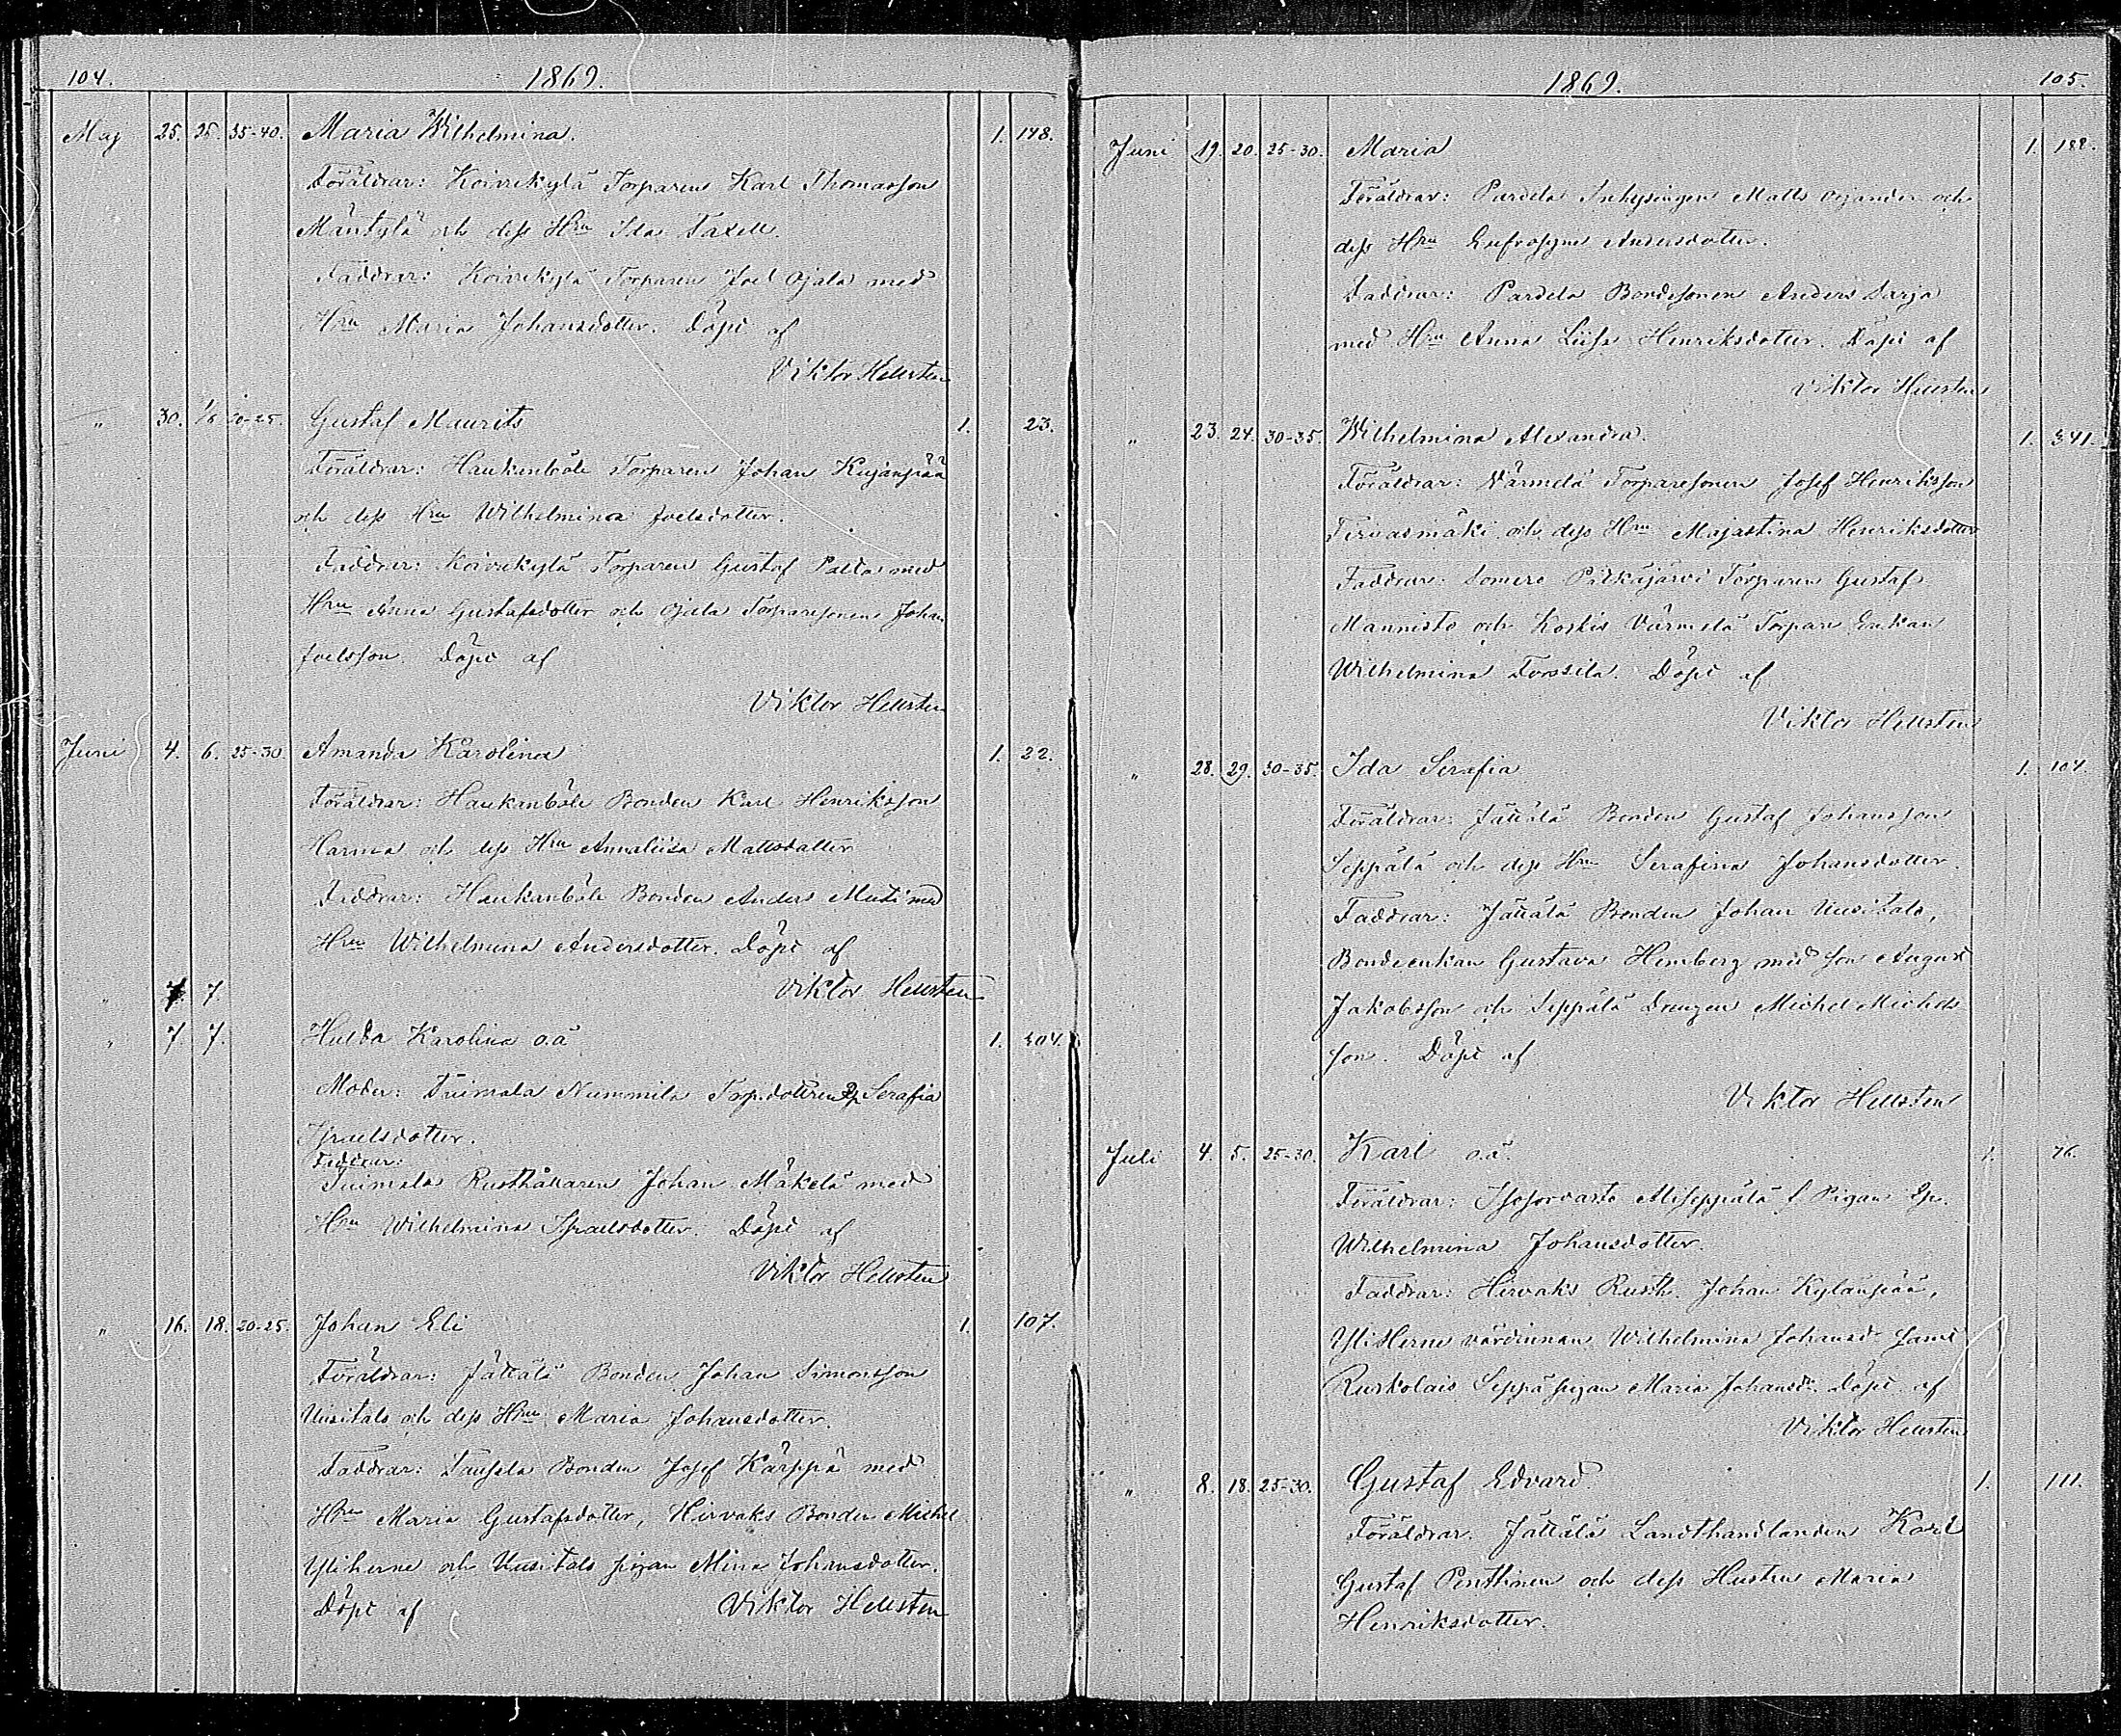 104. 1869.
Maj 25. 25. 35-40. Maria Wilhelmina. 1. 148.
Föräldrar: Koivukylä Torparen Karl Thomasson
Mäntylä och dess Hru Ida Taxell.
Faddrar: Koivukylä Torparen Joel Ojala med
Hru Maria Johansdotter. Döpt af
Viktor Hellsten
" 30. 20-25. Gustaf Maurits 1. 23.
Föräldrar: Haukanböle Torparen Johan Kujanpää
och dess Hru Wilhelmina Joelsdotter.
Faddrar: Koivukylä Torparen Gustaf Palda med
Hru Anna Gustafsdotter och Ojala Torparesonen Johan
Joelsson. Döpt af
Viktor Hellsten
Juni 4. 6. 25-30 Amanda Karolina 1. 22.
Föräldrar: Haukanböle Bonden Karl Henriksson
Harma och dess Hru Annaliisa Mattsdotter
Faddrar: Haukanböle Bonden Anders med
Hru Wilhelmina Andersdotter. Döpt af
" 7. 7. Viktor Hellsten
" 7. 7. Hulda Karolina o.ä 1. 404.
Moder: Tuimala Nummila Torp.dottren Serafia
Israelsdotter.
Faddrar:
Tuimala Rusthållaren Johan Mäkelä med
Hru Wilhelmina Israelsdotter. Döpt af
Viktor Hellsten
" 16. 18. 20-25. Johan Eli 1. 107.
Föräldrar: Jättälä Bonden Johan Simonsson
Uusitalo och dess Hru Maria Johansdotter.
Faddrar: Bonden Josef Kärppä med
Hru Maria Gustafsdotter, Hirvaks Bonden Michel
Yliherne och Uusitalo pigan Mina Johansdotter.
Döpt af Viktor Hellsten
1869. 105.
Juni 19. 20. 25-30. Maria 1. 188.
Föräldrar: Pardela Inhysingen Matts Ojander och
dess Hru Eufrosyne Andersdotter.
Faddrar: Pardela Bondesonen Anders Sarja
med Hru Anna Liisa Henriksdotter. Döpt af
Viktor Hellsten
" 23. 24. 30-35. Wilhelmina Alexandra. 1. 341.
Föräldrar: Värmelä Torparesonen Josef Henriksson
Tervasmäki och dess Hru Majastina Henriksdotter
Faddrar: Somero Pitkäjärvi Torparen Gustaf
Mannisto och Koskis Värmelä Torpare Enkan
Wilhelmina Forssila. Döpt af
Viktor Hellsten
" 28. 29. 30-35. Ida Serafia 1. 104.
Föräldrar: Jättälä Bonden Gustaf Johansson
Seppälä och dess Hru Serafina Johansdotter.
Faddrar: Jättälä Bonden Johan Uusitalo,
Bondeenkan Gustava Hemberg med son August
Jakobsson och Seppälä Drengen Michel Michels
son. Döpt af
Viktor Hellsten
Juli 4. 5. 25-30. Karl o.ä. 1. 76.
Föräldrar: Isosorvasto Aliseppälä f Pigan
Wilhelmina Johansdotter.
Faddrar: Hirvaks Rusth. Johan Kylänpää,
YliHerne värdinnan Wilhelmina Johansd. samt
Ruskolais Seppä pigan Maria Johansdr. Döpt af
Viktor Hellsten
" 8. 18. 25-30. Gustaf Edvard. 1. 111.
Föräldrar. Jättälä Landthandlanden Karl
Gustaf Penttinen och dess Hustru Maria
Henriksdotter.